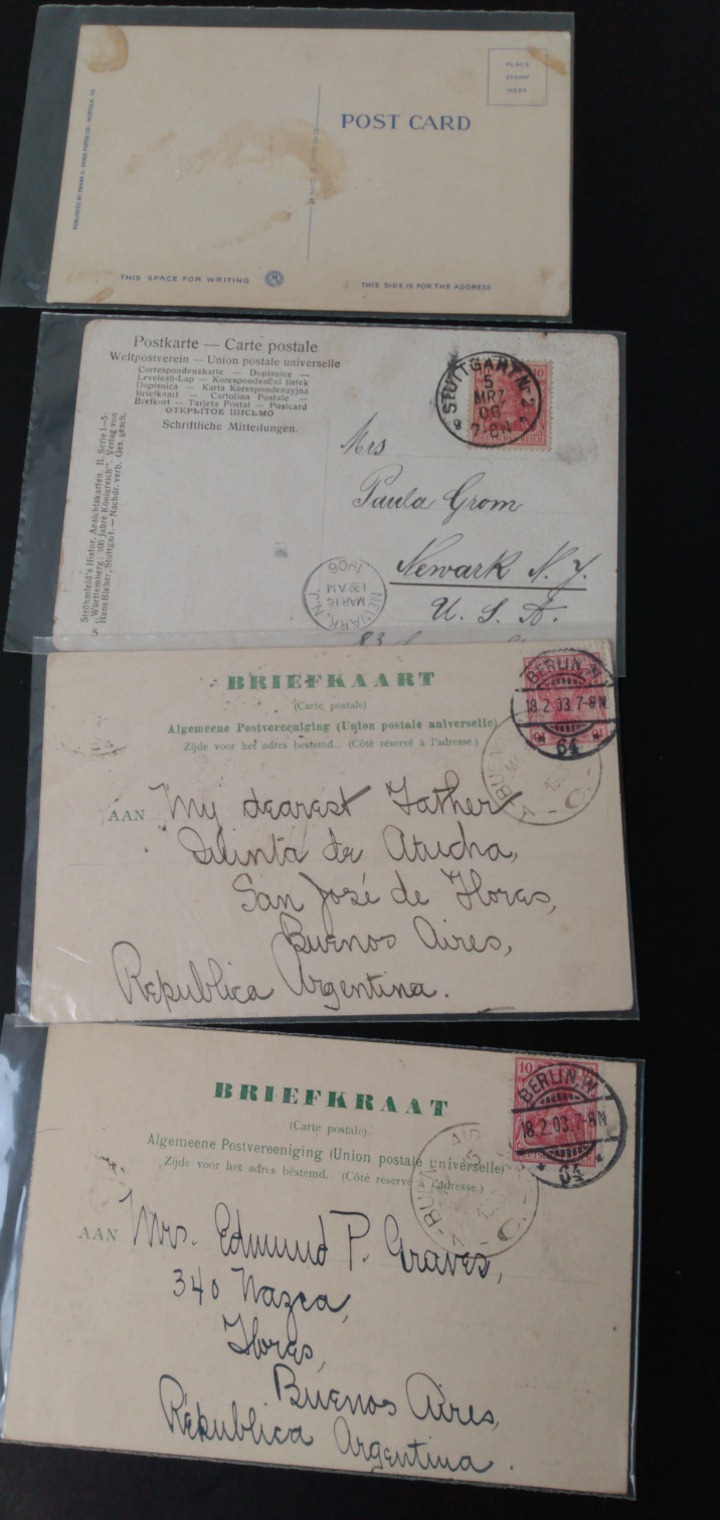 PUBLISHED BY FRANK D. PARIS PAPER CO., NORFOLK, VA.
PLACE
STAMP
HERE
POST CARD
MADE IN U.S.A
THIS SPACE FOR WRITING
THIS SIDE IS FOR THE ADDRESS
Postkarte — Carte postale
Weltpostverein — Union postale universelle
Correspondenzkarte — Dopisnice —
Levelező-Lap — Korespondenční lístek
Dopisnica — Karta Korespondenzyjna
Briefkaart — Cartolina Postale —
Bretkort — Tarjeta Postal — Postcard
ОТКРЫТОЕ ПИСЬМО
Schriftliche Mitteilungen.
Ströhmfeld's Histor. Ansichtskarten. II. Serie 1–5:
„Württemberg: 100 Jahre Königreich“. Verlag von
Hans Bieher, Stuttgart. — Nachdr. verb. Ges. gesch.
5
STUTTGART N. 2
5
MRZ
06
7-8N
10
REICH
Mrs
Paula Grom
Newark N. Y.
U. S. A.
83
NEWARK, N.J.
MAR 16
130 AM
1906
BRIEFKAART
(Carte postale)
Algemeene Postvereeniging (Union postale universelle)
Zijde voor het adres bestemd. (Côté réservé à l'adresse.)
BERLIN.W
18.2.03.7-8N.
64
AAN My dearest Father
Quinta de Atucha,
San José de Flores,
Buenos Aires,
Republica Argentina.
BRIEFKRAAT
(Carte postale)
Algemeene Postvereeniging (Union postale universelle)
Zijde voor het adres bestemd. (Côté réservé l'adresse.)
10
BERLIN.W
18.2.03.7-8N
64
AAN Mrs. Edmund P. Graves,
340 Nazca,
Flores,
Buenos Aires,
Republica Argentina.